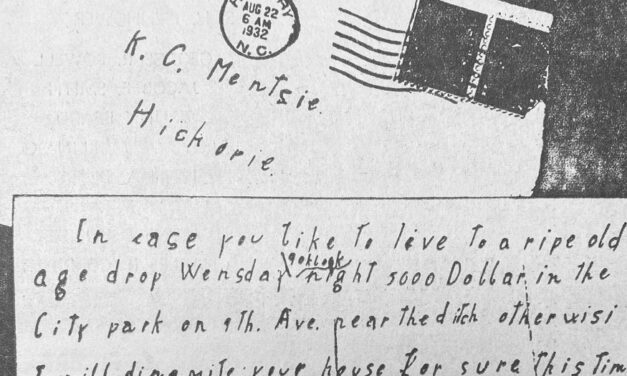 AUG 22
6 AM
1932
N.C.
K. C. Mentsie.
Hickorie.
In case you like to live to a ripe old
9oklock
age drop Wensday night 5000 Dollar in the
City park on 9th. Ave. near the ditch otherwisi
I will dinamite your house for sure this Tim